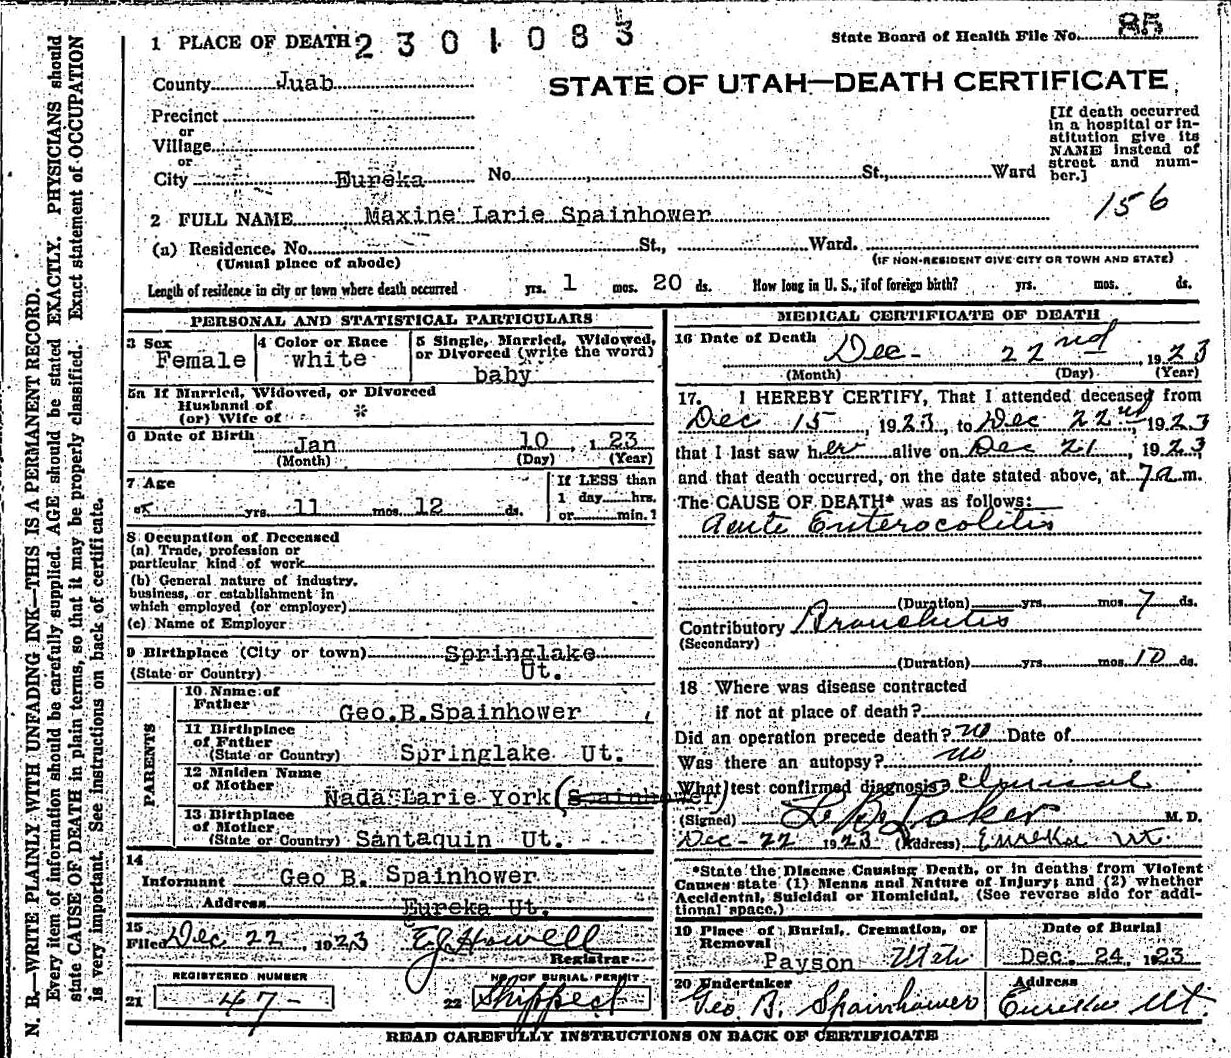 1 PLACE OF DEATH 2301083 State Board of Health File No. 85
County Juab STATE OF UTAH—DEATH CERTIFICATE
Precinct
or
Village
or
City Eureka No. , St., Ward
[If death occurred
in a hospital or in-
stitution give its
NAME instead of
street and num-
ber.]
2 FULL NAME Maxine Larie Spainhower 156
(a) Residence. No. St., Ward.
(Usual place of abode) (IF NON-RESIDENT GIVE CITY OR TOWN AND STATE)
Length of residence in city or town where death occurred yrs. 1 mos. 20 ds. How long in U. S., if of foreign birth? yrs. mos. ds.
PERSONAL AND STATISTICAL PARTICULARS
3 Sex
Female
4 Color or Race
white
5 Single, Married, Widowed,
or Divorced (write the word)
baby
5a If Married, Widowed, or Divorced
Husband of
(or) Wife of *
6 Date of Birth
Jan 10 , 1 23
(Month) (Day) (Year)
7 Age
yrs. 11 mos. 12 ds.
If LESS than
1 day hrs.
or min.?
8 Occupation of Deceased
(a) Trade, profession or
particular kind of work
(b) General nature of industry,
business, or establishment in
which employed (or employer)
(c) Name of Employer
9 Birthplace (City or town) Springlake
(State or Country) Ut.
PARENTS
10 Name of
Father
Geo.B.Spainhower
11 Birthplace
of Father
(State or Country) Springlake Ut.
12 Maiden Name
of Mother
Nada Larie York (Spainhower)
13 Birthplace
of Mother
(State or Country) Santaquin Ut.
14
Informant Geo B. Spainhower
Address Eureka Ut.
15
Filed Dec 22, 1923 E.J. Howell
Registrar
REGISTERED NUMBER
21 47-
NO. OF BURIAL PERMIT
22 Shipped
MEDICAL CERTIFICATE OF DEATH
16 Date of Death
Dec- 22nd 1923
(Month) (Day) (Year)
17. I HEREBY CERTIFY, That I attended deceased from
Dec 15, 1923, to Dec 22nd 1923
that I last saw her alive on Dec 21, 1923
and that death occurred, on the date stated above, at 7 a m.
The CAUSE OF DEATH* was as follows:
Acute Enterocolitis
(Duration) yrs. mos. 7 ds.
Contributory Bronchitis
(Secondary)
(Duration) yrs. mos. 10 ds.
18 Where was disease contracted
if not at place of death?
Did an operation precede death? no Date of
Was there an autopsy? no
What test confirmed diagnosis? Clinical
(Signed) M. D.
Dec-22 1923 (Address) Eureka Ut.
*State the Disease Causing Death, or in deaths from Violent
Causes state (1) Means and Nature of Injury; and (2) whether
Accidental, Suicidal or Homicidal. (See reverse side for addi-
tional space.)
19 Place of Burial, Cremation, or
Removal
Payson Utah
Date of Burial
Dec. 24, 1923
20 Undertaker
Geo. B. Spainhower
Address
Eureka Ut.
READ CAREFULLY INSTRUCTIONS ON BACK OF CERTIFICATE
N. B.—WRITE PLAINLY WITH UNFADING INK—THIS IS A PERMANENT RECORD.
Every item of information should be carefully supplied. AGE should be stated EXACTLY. PHYSICIANS should
state CAUSE OF DEATH in plain terms, so that it may be properly classified. Exact statement of OCCUPATION
is very important. See instructions on back of certificate.